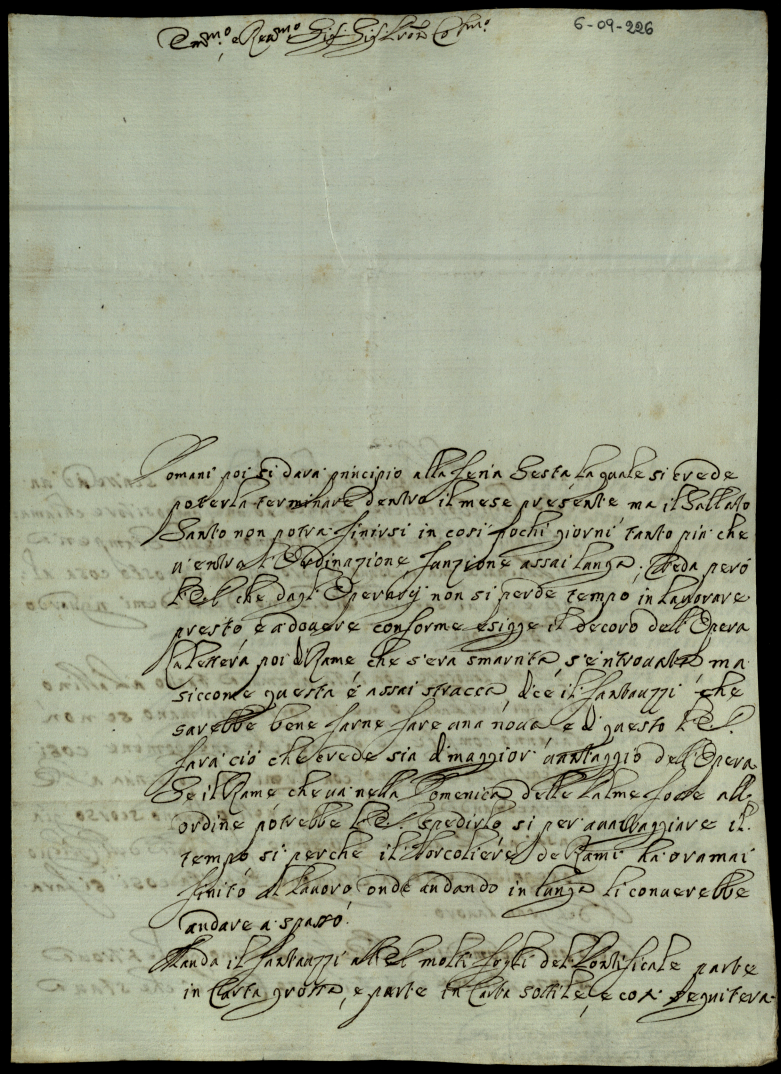 6-09-226
Em.mo, e Rev.mo Sig. Sig. Pron Col.mo
Domani poi si dara principio alla feria Sesta la quale si crede
poterla terminare dentro il mese presente ma il Sabbato
Santo non potra finirsi in cosi pochi giorni tanto piu che
v'entra l'Ordinazione funzione assai lunga. Creda però
V.E. che dagl'Operarij non si perde tempo in lavorare
presto e a dovere conforme esigge il decoro dell'Opera
La lettera poi d Rame che s'era smarrita s'è ritrovata ma
siccome questa è assai stracca dice il fantauzzi che
sarebbe bene farne fare una nova e d questo V.E.
fara ciò che crede sia d maggior avantaggio dell'Opera
Se il Rame che va nella Domenica delle Palme fosse all'
ordine potrebbe V.E. spedirlo si per avantaggiare il
tempo si perche il Torcoliere de Rami ha oramai
finito il lavoro onde andando in lungo li converebbe
andare a spasso.
Manda il fantauzzi all'E.V. molti fogli del Pontificale parte
in Carta grossa, e parte in Carta sottile, e così seguitera